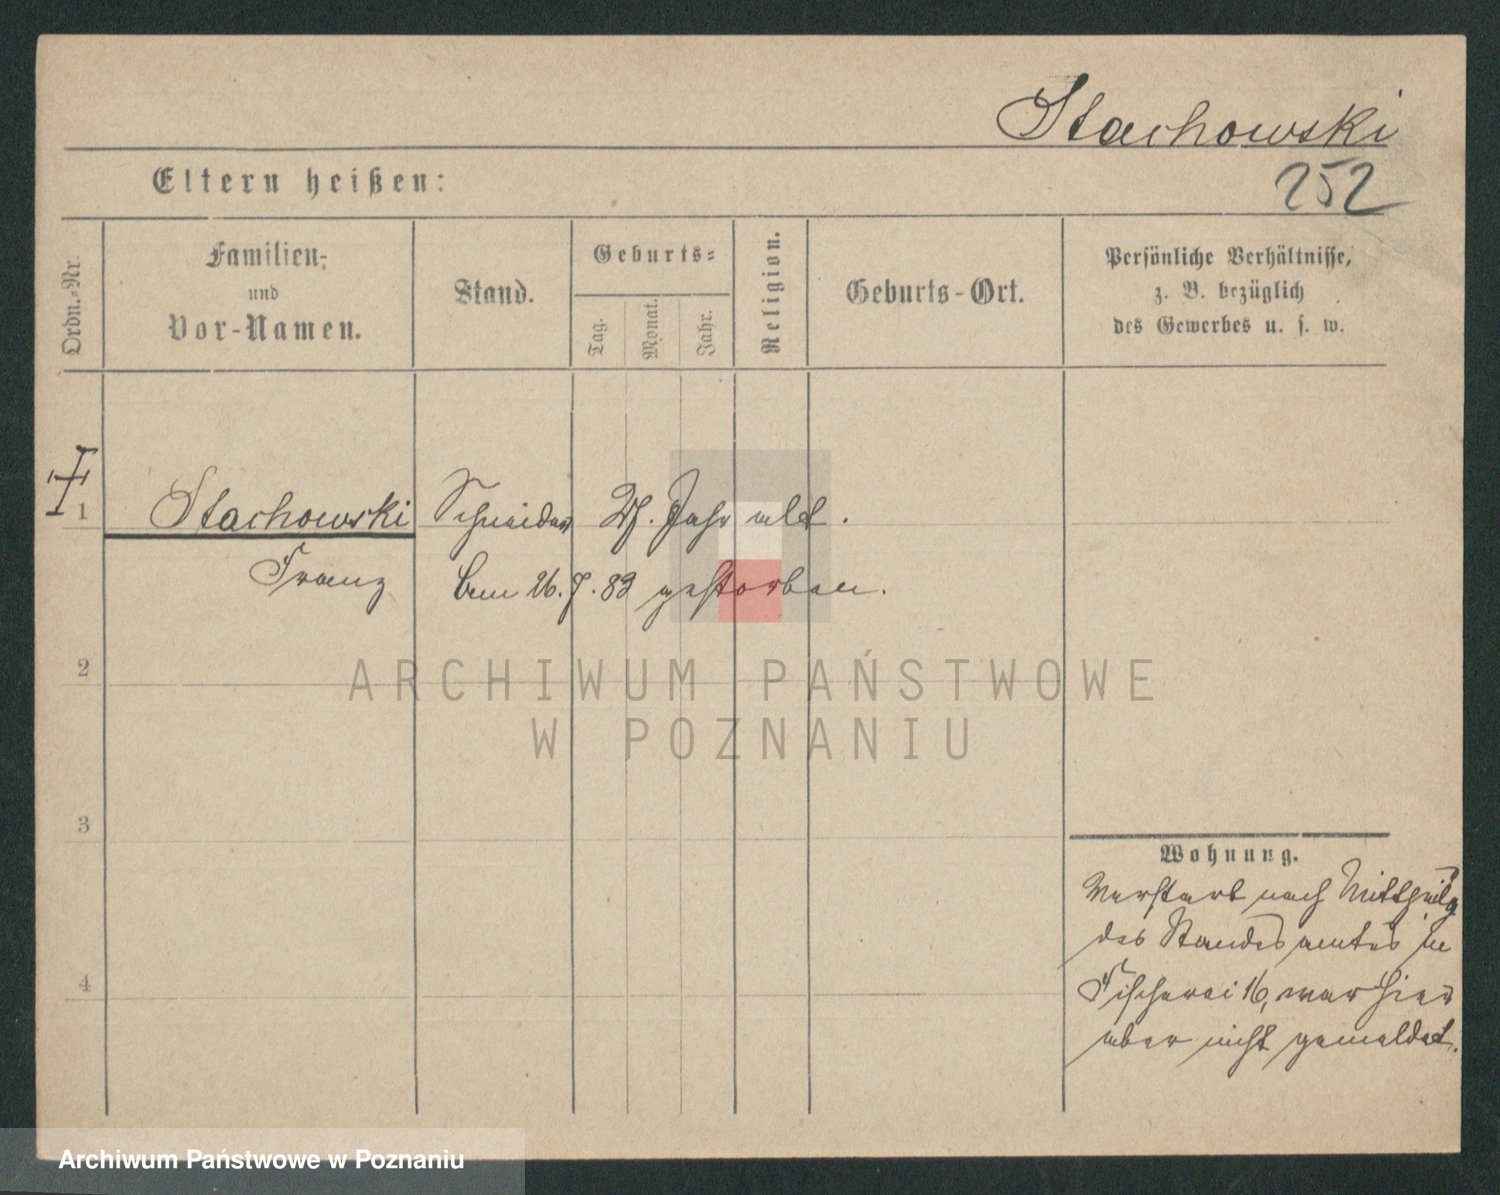 Stachowski
252
Eltern heißen:
Ordn.-Nr.
Familien-
und
Vor-Namen.
Stand.
Geburts-
Tag.
Monat.
Jahr.
Religion.
Geburts-Ort.
Persönliche Verhältnisse,
z. B. bezüglich
des Gewerbes u. s. w.
1 Stachowski Schneider Jahr alt.
Franz am 26.7.83 gestorben.
2
3
4
ARCHIWUM PAŃSTWOWE
W POZNANIU
Wohnung.
Verstarb nach Mittheilg
des Standesamtes in
Fischerei 16, war hier
aber nicht gemeldet.
Archiwum Państwowe w Poznaniu